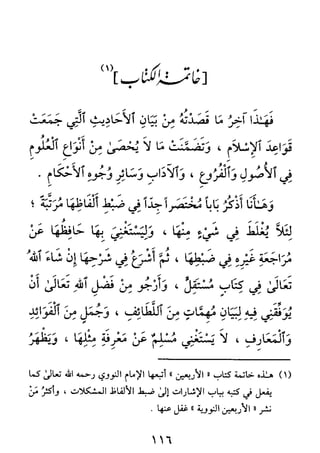 [خاتمة الكتاب] (١)
فَهَـٰذَا آخِرُ مَا قَصَدْتُهُ مِنْ بَيَانِ الأَحَادِيثِ الَّتِي جَمَعَتْ
قَوَاعِدَ الإِسْلاَمِ ، وَتَضَمَّنَتْ مَا لاَ يُحْصَىٰ مِنْ أَنْوَاعِ الْعُلُومِ
فِي الأُصُولِ وَالْفُرُوعِ ، وَالآدَابِ وَسَائِرِ وُجُوهِ الأَحْكَامِ .
وَهَـٰأَنَا أَذْكُرُ بَاباً مُخْتَصَراً جِدّاً فِي ضَبْطِ أَلْفَاظِهَا مُرَتَّبَةً ؛
لِئَلاَّ يُغْلَطَ فِي شَيْءٍ مِنْهَا ، وَلِيَسْتَغْنِيَ بِهَا حَافِظُهَا عَنْ
مُرَاجَعَةِ غَيْرِهِ فِي ضَبْطِهَا ، ثُمَّ أَشْرَعُ فِي شَرْحِهَا إِنْ شَاءَ اللهُ
تَعَالَىٰ فِي كِتَابٍ مُسْتَقِلٍّ ، وَأَرْجُو مِنْ فَضْلِ اللهِ تَعَالَىٰ أَنْ
يُوَفِّقَنِي فِيهِ لِبَيَانِ مُهِمَّاتٍ مِنَ اللَّطَائِفِ ، وَجُمَلٍ مِنَ الْفَوَائِدِ
وَالْمَعَارِفِ ، لاَ يَسْتَغْنِي مُسْلِمٌ عَنْ مَعْرِفَةِ مِثْلِهَا ، وَيَظْهَرُ
(١) هـٰذه خاتمة كتاب « الأربعين » أتبعها الإمام النووي رحمه الله تعالىٰ كما
يفعل في كتبه بباب الإشارات إلىٰ ضبط الألفاظ المشكلات ، وأكثرُ مَنْ
نشر « الأربعين النووية » غفل عنها .
١١٦